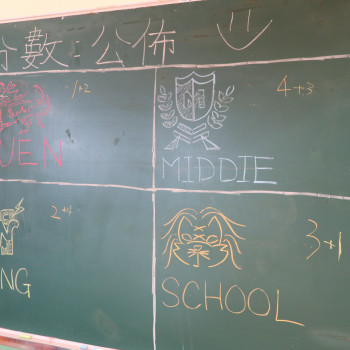 分數 公佈
1+2
UEN
4+3
MIDDIE
2+4
NG
3+1
SCHOOL